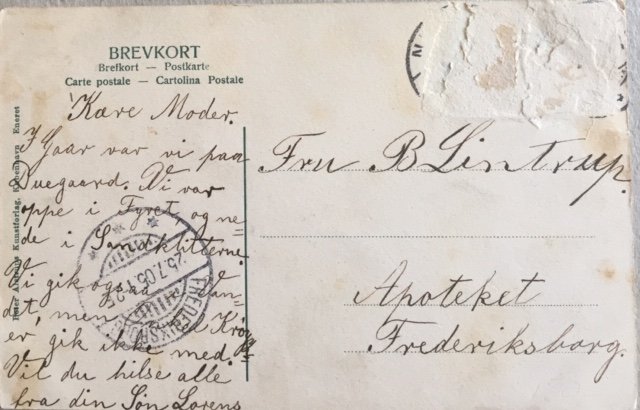 BREVKORT
Brefkort — Postkarte
Carte postale — Cartolina Postale
Kære Moder.
I Gaar var vi paa
Tuegaard. Vi var
oppe i Fyret, og ne-
de i Sandklitterne.
Vi gik ogsaa i Van-
det, men Krøy-
er gik ikke med.
Vil du hilse alle
fra din Søn Lorens
Fru B Lintrup.
Apoteket
Frederiksborg.
Peter Alstrups Kunstforlag, København Eneret
25.7.05
FREDERIKSBORG